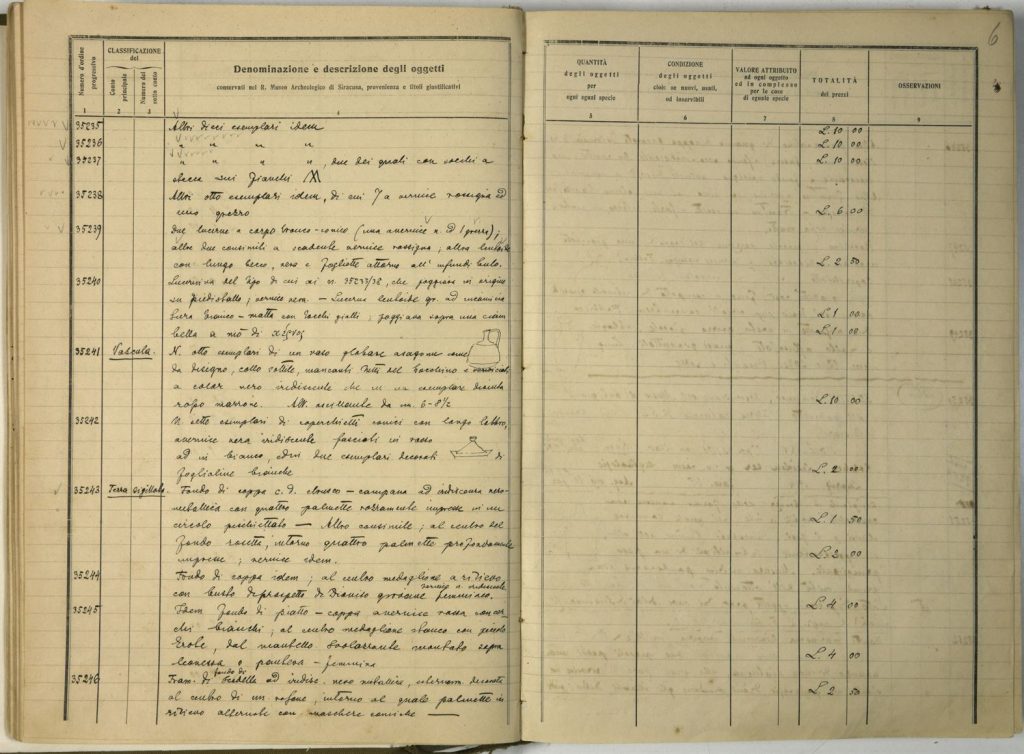 6
Numero d'ordine progressivo
CLASSIFICAZIONE del
Conto principale
Numero del sotto conto
Denominazione e descrizione degli oggetti
conservati nel R. Museo Archeologico di Siracusa, provenienza e titoli giustificativi
QUANTITÀ degli oggetti per ogni egual specie
CONDIZIONE degli oggetti cioè: se nuovi, usati, od inservibili
VALORE ATTRIBUITO ad ogni oggetto od in complesso per le cose di eguale specie
TOTALITÀ dei prezzi
OSSERVAZIONI
1 2 3 4 5 6 7 8 9
35235 Altri dieci esemplari idem L. 10 00
35236 " " " " L. 10 00
35237 " " " ", due dei quali con occhi a L. 10 00
sui fianchi
35238 Altri otto esemplari idem, di cui 7 a vernice rossigna ed
uno grezzo L. 6 00
35239 due lucerne a corpo tronco-conico (una a vernice n. ed 1 grezza);
altre due consimili a scadente vernice rossigna; altra lenticolare
con lungo becco, nera e fogliette attorno all'infundibulo. L. 2 50
35240 Lucernina del tipo di cui ai n. 35237/38, che poggiava in origine
su piedistallo; vernice nera. — Lucerna lenticolare gr. ad
bianco-matta con tocchi gialli; poggiava sopra una L. 1 00
bella a mo' di L. 1 00
35241 Vascula. N. otto esemplari di un vaso globare come
da disegno, collo sottile, mancanti tutti del
a color nero iridiscente che in un esemplare diventa
rosso marrone. Alt. oscillante da m. 6-8½ L. 10 00
35242 N. sette esemplari di coperchietti conici con largo labbro,
a vernice nera iridiscente fasciati in rosso
ed in bianco, due esemplari decorati di
foglialine bianche L. 2 00
35243 Terra sigillata Fondo di coppa c. d. etrusco-campana ad iridiscenza nero-
metallica con quattro palmette rozzamente impresse in un
circolo — Altro consimile; al centro del L. 1 50
fondo rosetta, intorno quattro palmette profondamente
impresse; vernice idem. L. 2 00
35244 Fondo di coppa idem; al centro medaglione a rilievo
con busto di prospetto di Dioniso giovane femmineo. vernice n. iridiscente L. 4 00
35245 Idem fondo di piatto-coppa a vernice rossa con
bianchi; al centro medaglione bianco con piccolo
Erote, dal mantello svolazzante montato sopra
leonessa o pantera-femmina L. 4 00
35246 Fram. di fondo di ad iridisc. nero metallica, internam. decorata
al centro di un rosone, intorno al quale palmette in L. 2 50
rilievo alternate con maschere comiche —